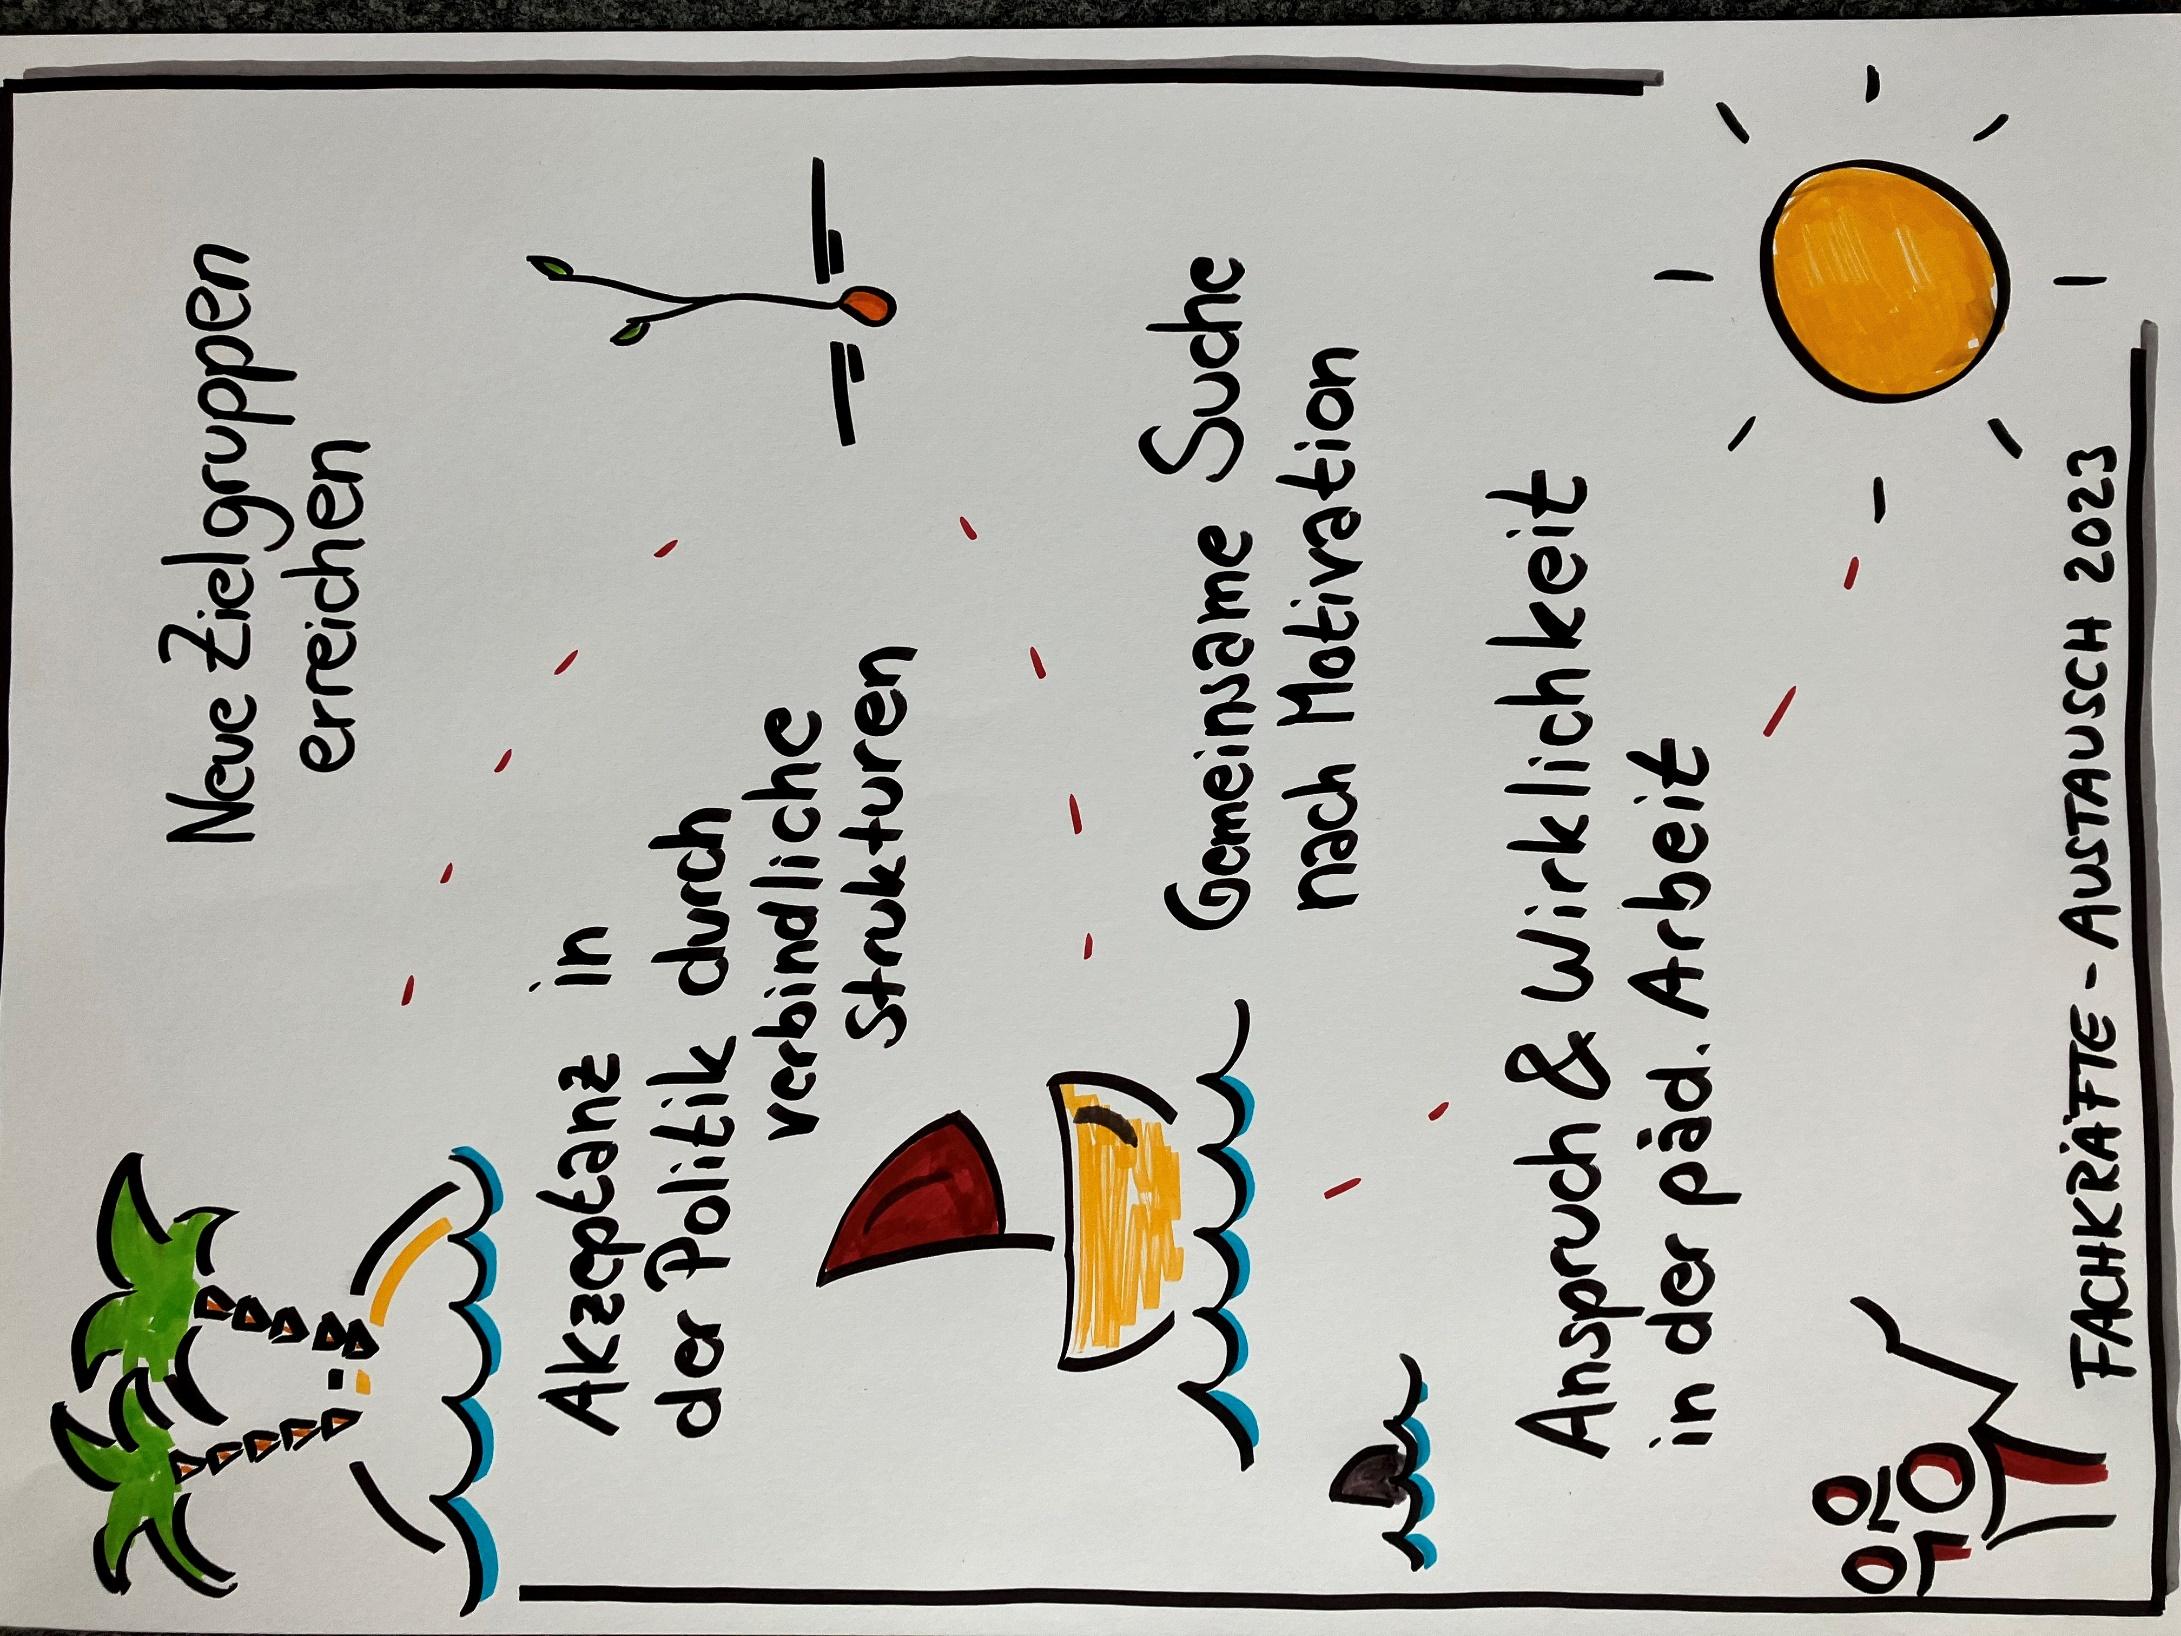 Neue Zielgruppen
erreichen
Akzeptanz in
der Politik durch
verbindliche
Strukturen
Gemeinsame Suche
nach Motivation
Anspruch & Wirklichkeit
in der päd. Arbeit
FACHKRÄFTE - AUSTAUSCH 2023